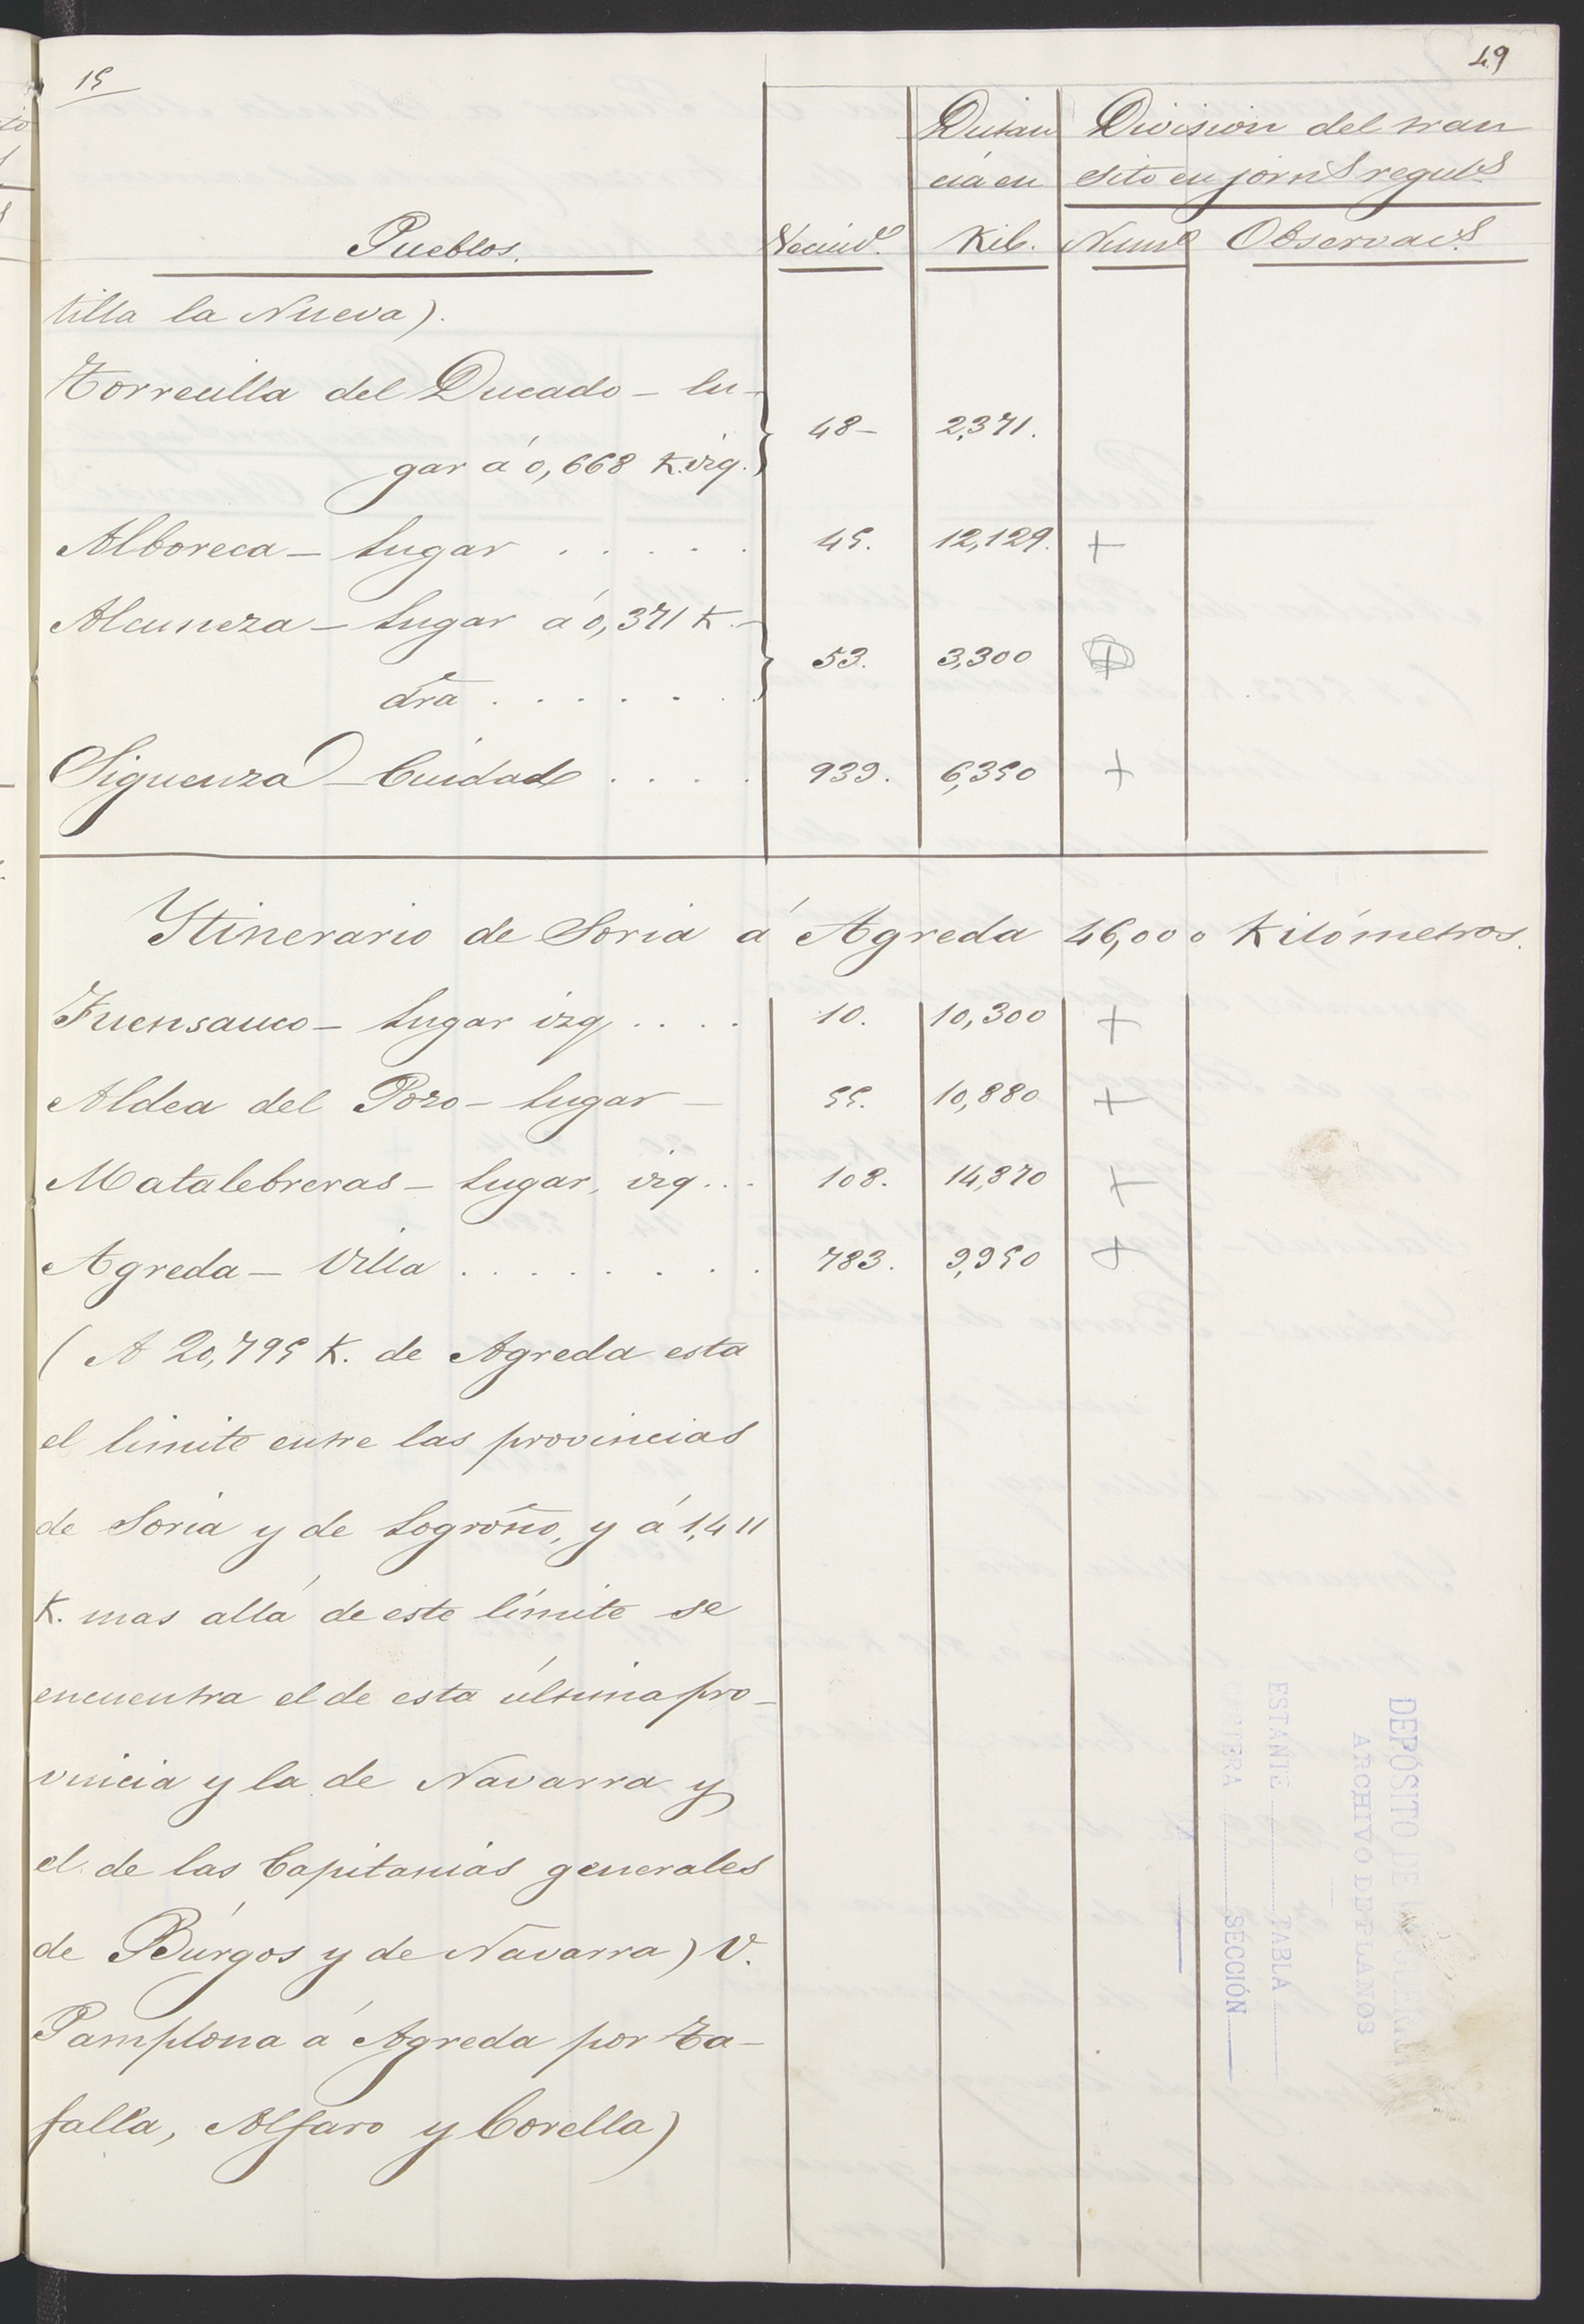 15
49
Distan
cia en
Kil.
Division del tran
sito en jorn.s regul.s
Pueblos.
Vecind.o
Num.o
Observac.s
tilla la Nueva).
Torrecilla del Ducado - lu-
gar á 0,668 K. izq.
48-
2,371.
Alboreca - Lugar . . . . .
45.
12,129.
+
Alcuneza - Lugar á 0,371 K.-
dra . . . . . .
53.
3,300
+
Siguenza - Ciudad . . . .
939.
6,350
+
Ytinerario de Soria á Agreda 46,000 Kilómetros.
Fuensauco - Lugar izq . . . .
10.
10,300
+
Aldea del Pozo - Lugar -
55.
10,880
+
Matalebreras - Lugar, izq . . .
108.
14,870
+
Agreda - Villa . . . . . . . .
783.
9,950
+
( A 20,795 K. de Agreda esta
el limite entre las provincias
de Soria y de Logroño, y á 1,411
K. mas allá de este límite se
encuentra el de esta última pro-
vincia y la de Navarra y
el de las Capitanias generales
de Búrgos y de Navarra) V.
Pamplona á Agreda por Ta-
falla, Alfaro y Corella)
DEPÓSITO DE LA GUERRA
ARCHIVO DE PLANOS
ESTANTE TABLA
CARTERA SECCIÓN